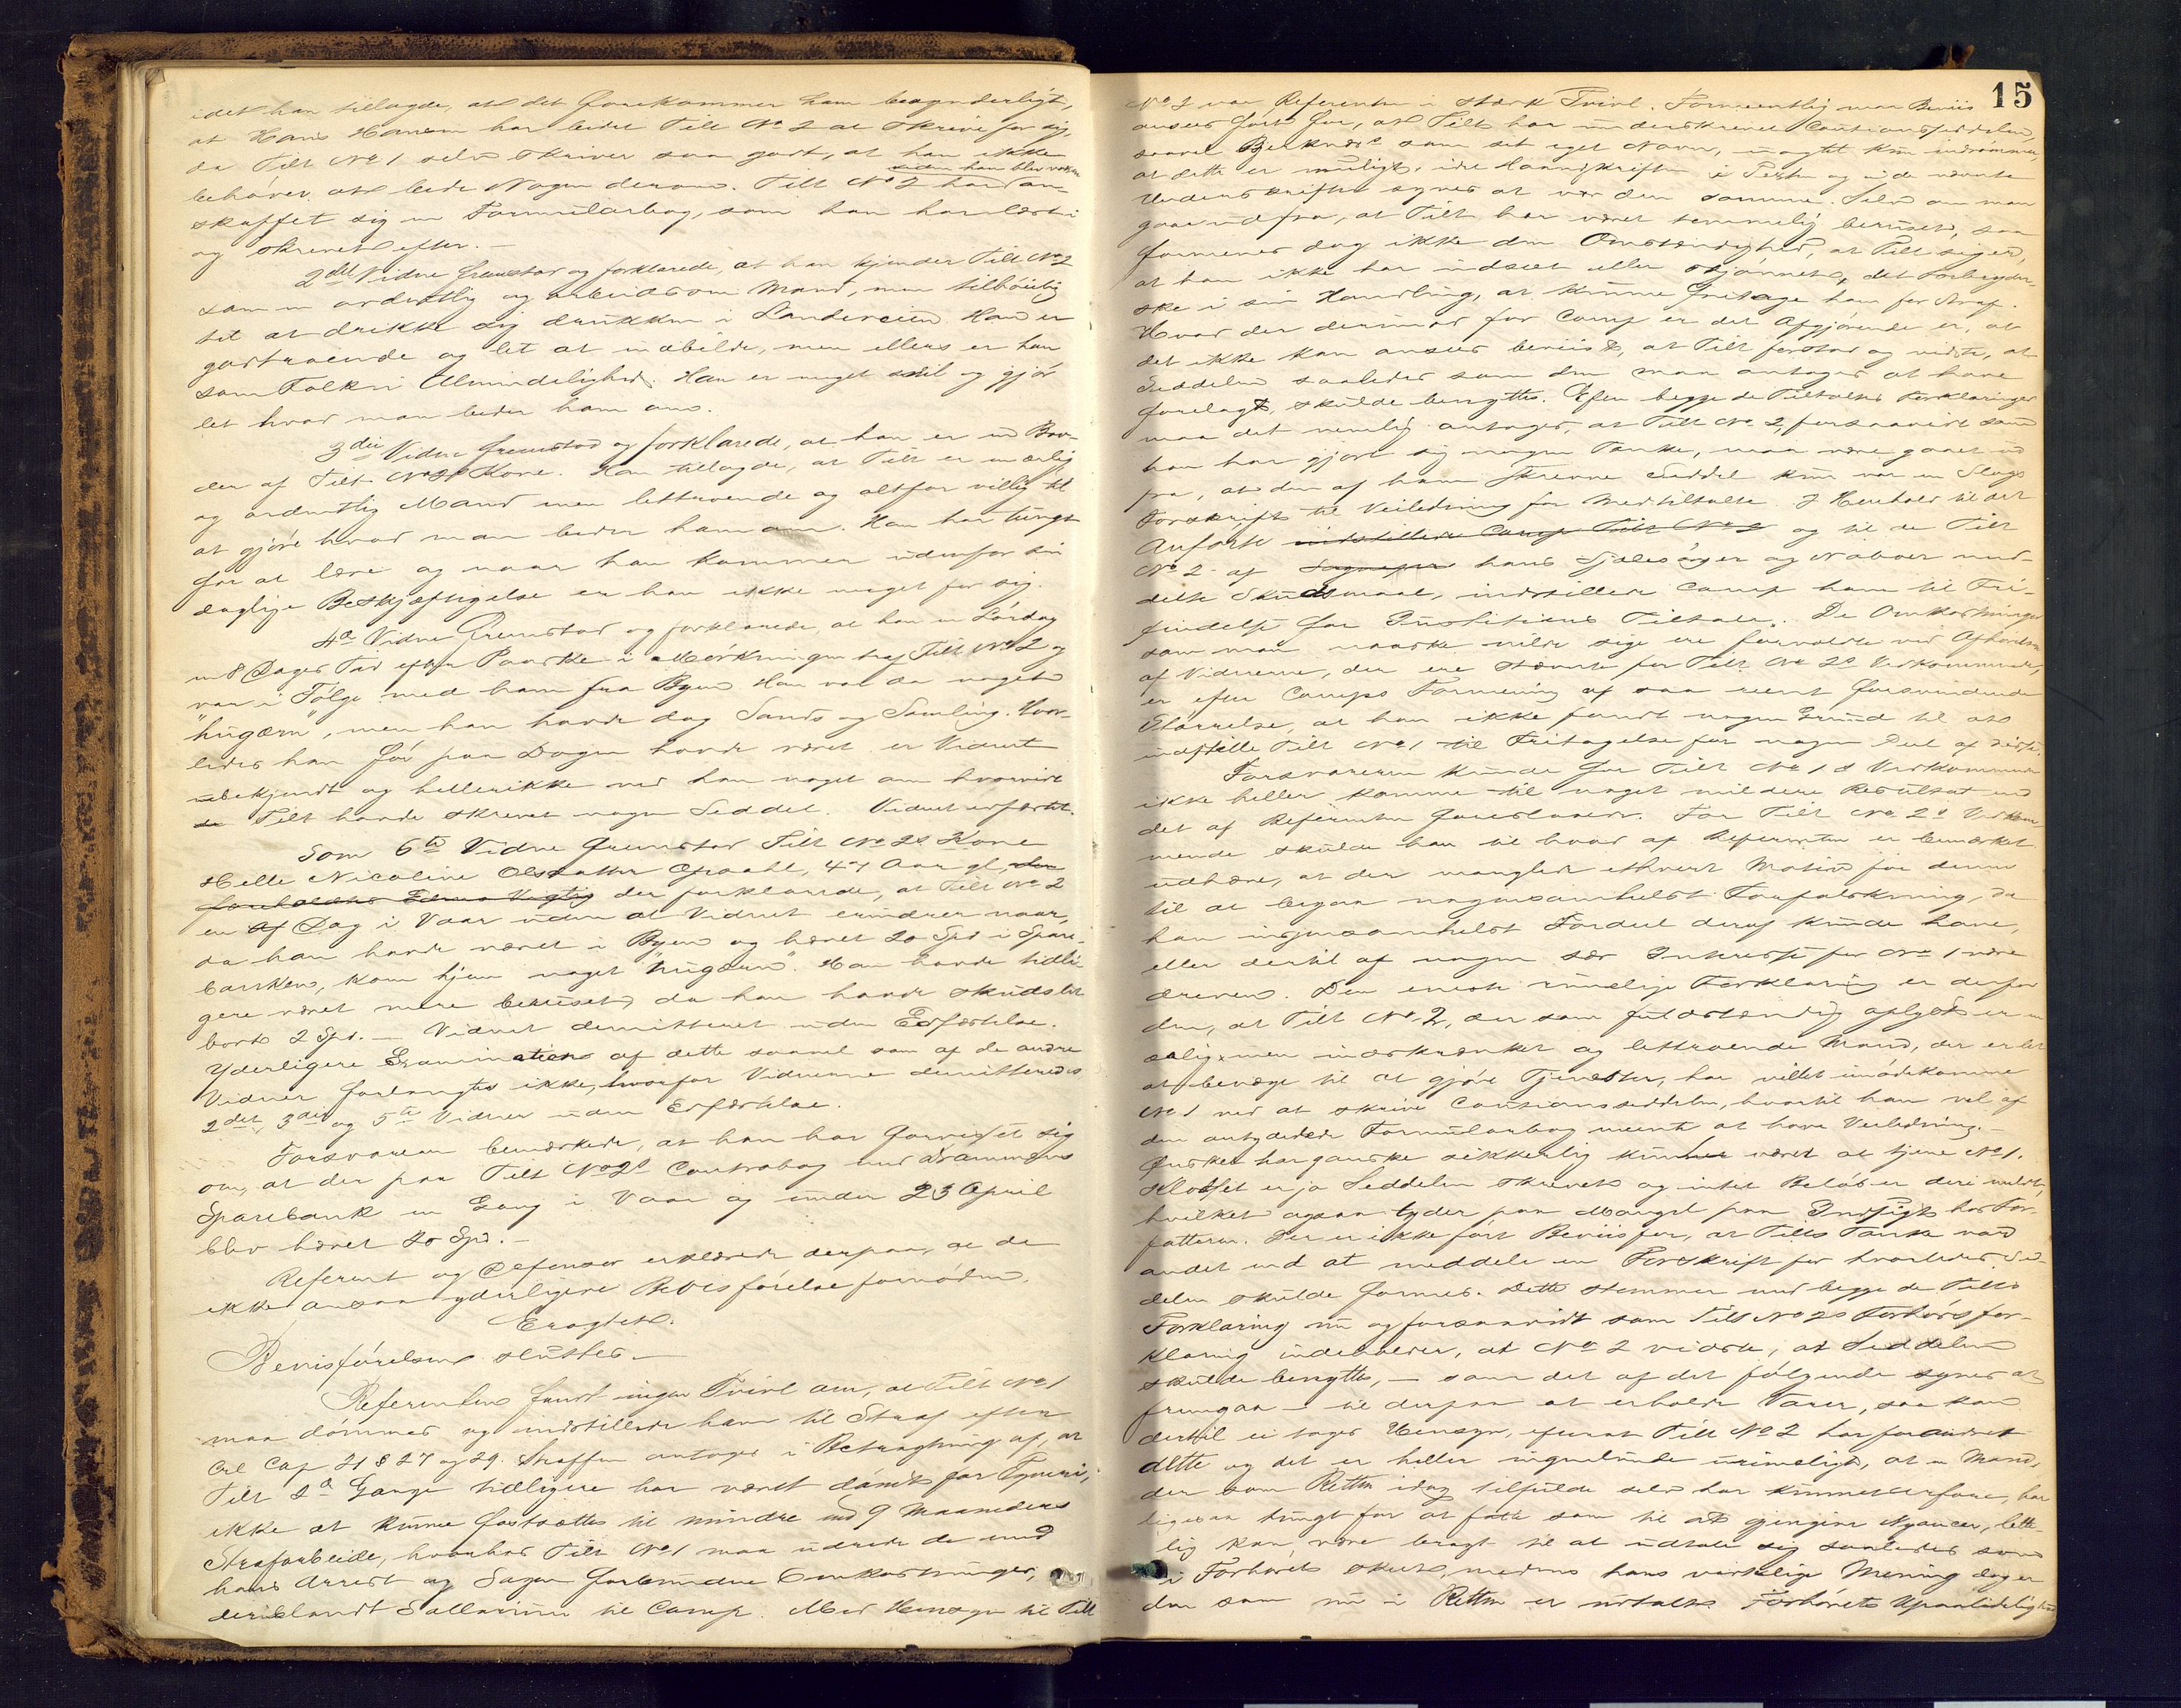 idet han tillagde, at det forekommer ham besynderligt,
at Hans Hansen har bedet Tilt No 2 at skrive for sig,
da Tilt No 1 selv skriver saa godt, at han ikke
behøver at bede Nogen derom. Tilt No 2 har an-
skaffet sig en Formularbog, som han har lært i
og skrevet efter. —
2det Vidne fremstod og forklarede, at han kjender Tilt No 2
som en ordentlig og arbeidsom Mand, men tilbøielig
til at drikke sig drukken i Landeveien. Han er
godtroende og let at indbilde, men ellers er han
som Folk i Almindelighed. Han er meget snil og gjør
let hvad man beder ham om.
3die Vidne fremstod og forklarede, at han er en Bro-
der af Tilt No 2s Kone. Han tillagde, at Tilt er en ærlig
og ordentlig Mand men lettroende og altfor villig til
at gjøre hvad man beder ham om. Han har tungt
for at lære og naar han kommer udenfor sin
daglige Beskjæftigelse er han ikke noget for sig.
4de Vidne fremstod og forklarede, at han en Lørdag
en 8 Dages Tid efter Paaske i Mørkningen traf Tilt No 2 og
var i Følge med ham fra Byen. Han var da noget
"hugærn", men han havde dog Sands og Samling. Hvor-
ledes han før paa Dagen havde været er Vidnet
ubekjendt og hellerikke ved han noget om hvorvidt
Tilt havde skrevet nogen Seddel. Vidnet
Som 6te Vidne fremstod Tilt No 2s Kone
Helle Nicoline Olsdatter 47 Aar gl,
der forklarede, at Tilt No 2
en Dag i Vaar uden at Vidnet erindrer naar,
da han havde været i Byen og hævet 20 Spd i Spare-
banken, kom hjem noget "hugærn". Han havde tidli-
gere været mere beruset, da han havde skudslet
bort 2 Spd. — Vidnet demitteret uden Edfæstelse.
Yderligere Examination af dette saavel som af de andre
Vidner forlangtes ikke, hvorfor Vidnerne demitteredes
2det, 3die og 5te Vidner uden Edfæstelse.
Forsvareren bemærkede, at han har forvisset sig
om, at der paa Tilt No 2s Contrabog med Drammens
Sparebank en Gang i Vaar og under 23 April
blev hævet 20 Spd. —
Referent og Defensor erklærede derpaa, at de
ikke ansaa yderligere Bevisførelse fornøden.
Eragtet.
Bevisførelsen sluttes. —
Referenten fandt ingen Tvivl om, at Tilt No 1
maa dømmes og indstillede ham til Straf efter
Crl Cap 21 § 27 og 29. Straffen antages i Betragtning af, at
Tilt 2de Gange tidligere har været dømt for Tyveri,
ikke at kunne fastsættes til mindre end 9 Maaneders
Strafarbeide, hvorhos Tilt No 1 maa udrede de med
hans Arrest og Sagen forbundne Omkostninger,
deriblandt Sallarium til Camp. Med Hensyn til Tilt
15
No 2 var Referenten i stærk Tvivl. Formentlig maa Beviis
ansees ført for, at Tilt har underskrevet Cautionssedelen,
saavel som sit eget Navn, uagtet kun indrømmer,
at dette er muligt, idet Haandskriften i Texten og i de nævnte
Underskrifter synes at være den samme. Selv om man
gaar ud fra, at Tilt har været temmelig beruset, saa
formenes dog ikke den Omstændighed, at Tilt siger,
at han ikke har indseet eller skjønnet, det Forbryder-
ske i sin Handling, at kunne fritage ham for Straf.
Hvad der derimod for Camp er det Afgjørende er, at
det ikke kan ansees beviist, at Tilt forstod og vidste, at
Seddelen saaledes som den maa antages at have
forelagt, skulde benyttes. Efter begge de Tiltaltes Forklaringer
maa det nemlig antages, at Tilt No 2, forsaavidt som
han har gjort sig nogen Tanke, maa være gaaet ud
fra, at den af ham skrevne Seddel kun var en Slags
Forskrift til Veiledning for Medtiltalte. I Henhold til det
Anførte indstillede Camp Tilt No 2 og til de Tilt
No 2 af hans Sjælesørger og Naboer med-
delte Skudsmaal, indstillede Camp ham til Fri-
findelse for Justitiens Tiltale. De Omkostninger
som man maaske vilde sige ere forvoldte ved Afhørelsen
af Vidnerne, der ere stævnte for Tilt No 2s Vedkommende,
er efter Camps Formening af saa reent forsvindende
Størrelse, at han ikke fandt nogen Grund til at
indstille Tilt No 1 til Fritagelse for nogen Deel af disse.
Forsvareren kunde for Tilt No 1s Vedkommende
ikke heller komme til noget mildere Resultat end
det af Referenten foreslaaede. For Tilt No 2s Vedkom-
mende skulde han til hvad af Referenten er bemærket
udhæve, at der mangler ethvert Motiv for denne
til at begaa nogensomhelst Forfalskning, da
han ingensomhelst Fordeel deraf kunde have,
eller dertil af nogen sær Interesse for No 1 være
dreven. Den eneste rimelige Forklaring er derfor
den, at Tilt No 2, der som fuldstændig oplyst er en
ærlig men indskrænket og lettroende Mand, der er let
at bevæge til at gjøre Tjenester, har villet imødekomme
No 1 ved at skrive Cautionsseddelen, hvortil han vel af
den antydede Formularbog meente at have Veiledning. —
Ønsket har ganske sikkerlig kun været at tjene No 1.
Klodset er jo Seddelen skrevet og intet Beløb er deri
hvilket ogsaa tyder paa Mangel paa Indsigt hos For-
fatteren. Der er ikke ført Beviis for, at Tilts Tanke var
andet end at meddele en Forskrift for hvorledes Sed-
delen skulde formes. Dette stemmer med begge de Tilts
Forklaring nu og forsaavidt som Tilt No 2s Forhørsfor-
klaring indeholder, at No 2 vidste, at Seddelen
skulde benyttes, — som det af det følgende synes at
fremgaa — til derpaa at erholde Varer, saa kan
dertil ei tages Hensyn, efterat Tilt No 2 har forandret
dette og det er heller ingenlunde urimeligt, at en Mand,
der som Retten idag tilfulde selv har kunnet erfare, har
ligesaa tungt for at fatte som til at gjengive Nyancer, lette-
lig kan være bragt til at udtale sig saaledes som
i Forhøret skeet, medens hans virkelige Mening dog er
den som nu i Retten er udtalt. Forhørets Upaalidelighed